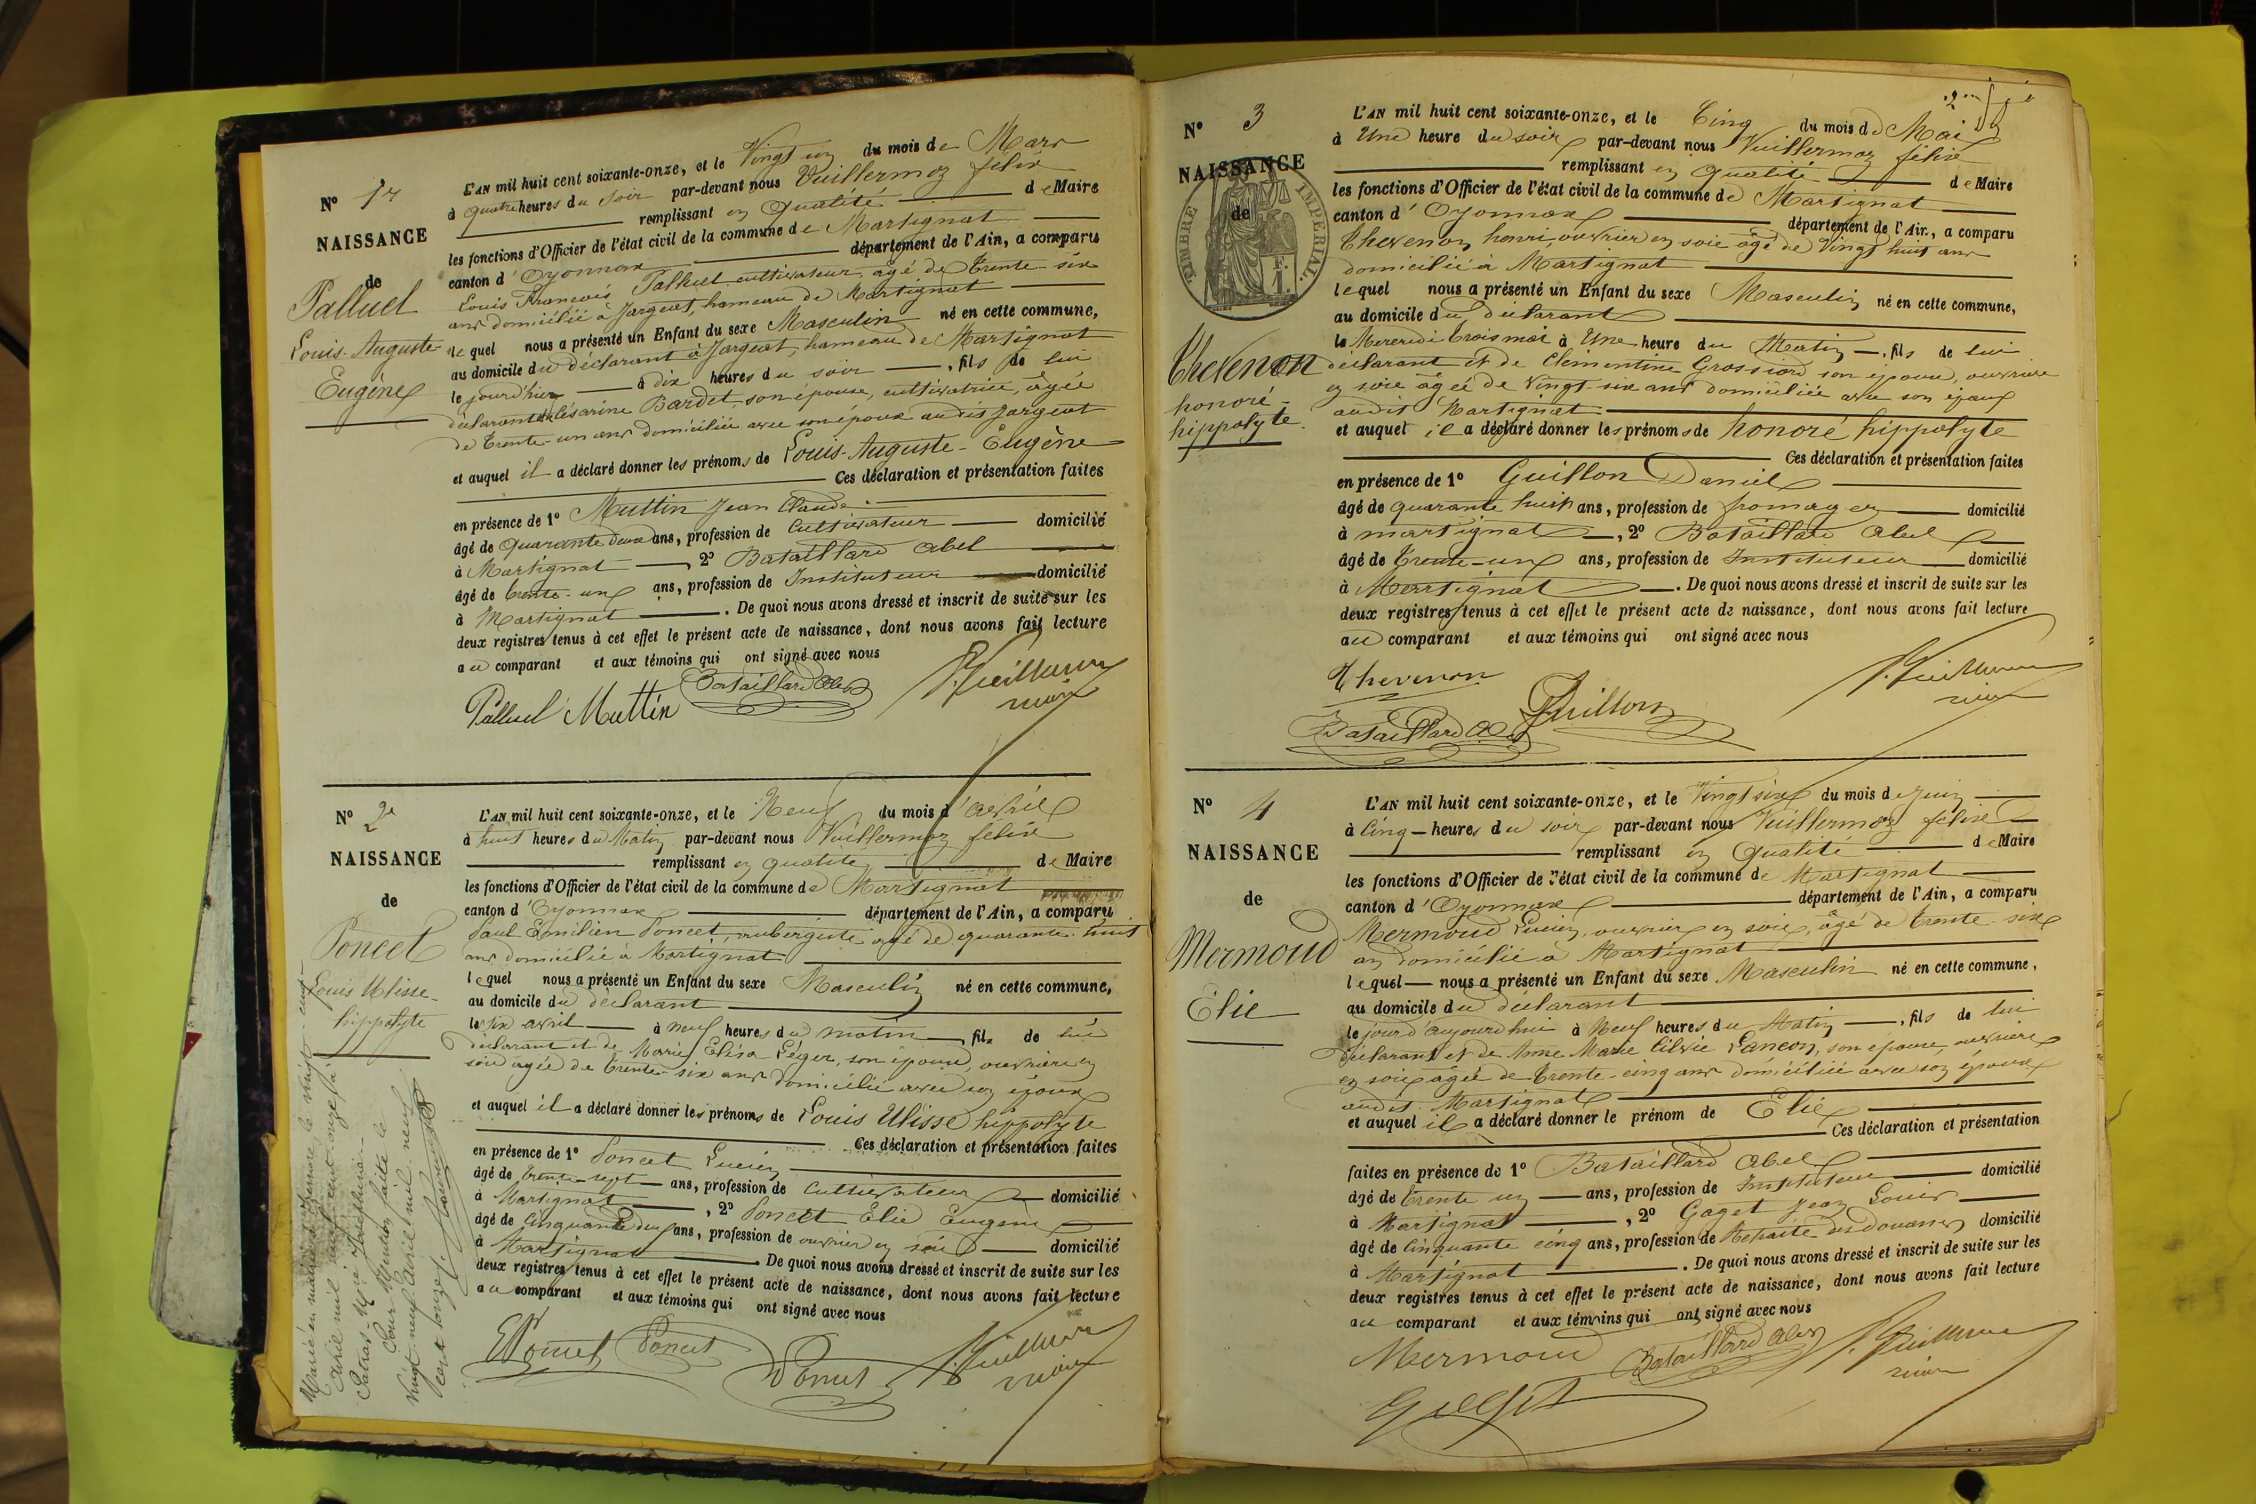 N° 1er
NAISSANCE
de
Palluel
Louis-Auguste
Eugène
L'AN mil huit cent soixante-onze, et le Vingt un du mois de Mars
à quatre heures du soir par-devant nous Vuillermoz félix
remplissant en qualité de Maire
les fonctions d'Officier de l'état civil de la commune de Martignat
canton d'Oyonnax département de l'Ain, a comparu
Louis François Palluel cultivateur âgé de trente-six
ans domicilié à Jargeat, hameau de Martignat
lequel nous a présenté un Enfant du sexe Masculin né en cette commune,
au domicile du déclarant à Jargeat, hameau de Martignat
le jourd'hui à dix heures du soir, fils de lui
déclarant Césarine Bardet, son épouse, cultivatrice, âgée
de trente-un ans domiciliée avec son époux audit Jargeat
et auquel il a déclaré donner les prénoms de Louis-Auguste-Eugène
Ces déclaration et présentation faites
en présence de 1° Muttin Jean Claude
âgé de quarante deux ans, profession de Cultivateur domicilié
à Martignat, 2° Bataillard Abel
âgé de trente-un ans, profession de Instituteur domicilié
à Martignat. De quoi nous avons dressé et inscrit de suite sur les
deux registres tenus à cet effet le présent acte de naissance, dont nous avons fait lecture
au comparant et aux témoins qui ont signé avec nous
Palluel Muttin Bataillard Abel
N° 2e
NAISSANCE
de
Poncet
Louis Ulisse-
hippolyte
L'AN mil huit cent soixante-onze, et le Neuf du mois d'avril
à huit heures du Matin par-devant nous Vuillermoz félix
remplissant en qualité de Maire
les fonctions d'Officier de l'état civil de la commune de Martignat
canton d'Oyonnax département de l'Ain, a comparu
Paul Emilien Poncet, aubergiste âgé de quarante huit
ans domicilié à Martignat
lequel nous a présenté un Enfant du sexe Masculin né en cette commune,
au domicile du déclarant
le six avril à neuf heures du matin, fils de lui
déclarant et de Marie Elisa Léger, son épouse, ouvrière en
soie âgée de trente-six ans domiciliée avec son époux
et auquel il a déclaré donner les prénoms de Louis Ulisse hippolyte
Ces déclaration et présentation faites
en présence de 1° Poncet Lucien
âgé de trente-sept ans, profession de Cultivateur domicilié
à Martignat, 2° Poncet Elie Eugène
âgé de Cinquante deux ans, profession de ouvrier en soie domicilié
à Martignat. De quoi nous avons dressé et inscrit de suite sur les
deux registres tenus à cet effet le présent acte de naissance, dont nous avons fait lecture
au comparant et aux témoins qui ont signé avec nous
Poncet Poncet
Avril mil neuf cent onze
Pour Mention faite le
Vingt-neuf Avril mil neuf
cent onze
N° 3
NAISSANCE
de
TIMBRE IMPERIAL
Thevenon
honoré-
hippolyte
L'AN mil huit cent soixante-onze, et le Cinq du mois de Mai
à Une heure du soir par-devant nous Vuillermoz félix
remplissant en qualité de Maire
les fonctions d'Officier de l'état civil de la commune de Martignat
canton d'Oyonnax département de l'Ain, a comparu
Thevenon henri, ouvrier en soie âgé de Vingt huit ans
domicilié à Martignat
lequel nous a présenté un Enfant du sexe Masculin né en cette commune,
au domicile du déclarant
le Mercredi trois mai à Une heure du Matin, fils de lui
déclarant et de Clémentine Grossiord son épouse, ouvrière
en soie âgée de vingt-six ans domiciliée avec son époux
audit Martignat
et auquel il a déclaré donner les prénoms de honoré hippolyte
Ces déclaration et présentation faites
en présence de 1° Guillon Daniel
âgé de quarante huit ans, profession de fromager domicilié
à martignat, 2° Bataillard Abel
âgé de trente-un ans, profession de Instituteur domicilié
à Martignat. De quoi nous avons dressé et inscrit de suite sur les
deux registres tenus à cet effet le présent acte de naissance, dont nous avons fait lecture
au comparant et aux témoins qui ont signé avec nous
Thevenon
Bataillard Guillon
N° 4
NAISSANCE
de
Mermoud
Elie
L'AN mil huit cent soixante-onze, et le Vingt six du mois de juin
à Cinq heures du soir par-devant nous Vuillermoz félix
remplissant en qualité de Maire
les fonctions d'Officier de l'état civil de la commune de Martignat
canton d'Oyonnax département de l'Ain, a comparu
Mermoud Lucien, ouvrier en soie, âgé de trente-six
an domicilié à Martignat
lequel nous a présenté un Enfant du sexe Masculin né en cette commune,
au domicile du déclarant
le jour d'aujourd'hui à Neuf heures du Matin, fils de lui
déclarant et de Anne Marie Lançon, son épouse, ouvrière
en soie âgée de trente-cinq ans domiciliée avec son époux
audit Martignat
et auquel il a déclaré donner le prénom de Elie
Ces déclaration et présentation
faites en présence de 1° Bataillard Abel
âgé de trente un ans, profession de Instituteur domicilié
à Martignat, 2° Gaget Jean Louis
âgé de Cinquante cinq ans, profession de Retraité des douanes domicilié
à Martignat. De quoi nous avons dressé et inscrit de suite sur les
deux registres tenus à cet effet le présent acte de naissance, dont nous avons fait lecture
au comparant et aux témoins qui ont signé avec nous
Mermoud Bataillard